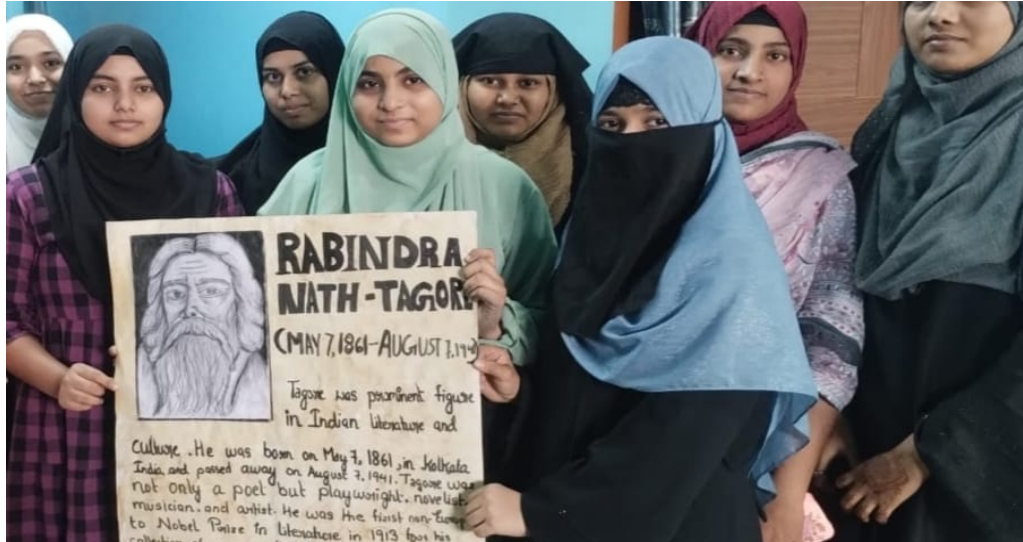 RABINDRA
NATH-TAGORE
(MAY 7, 1861-AUGUST 7, 194
Tagore was prominent figure
in Indian literature and
culture. He was born on May 7, 1861, in Kolkala
India, and passed away on August 7, 1941. Tagore was
not only a poet but playwright, novelist
musician. and artist. He was the first non-
to Nobel Prize In literature in 1913 for his